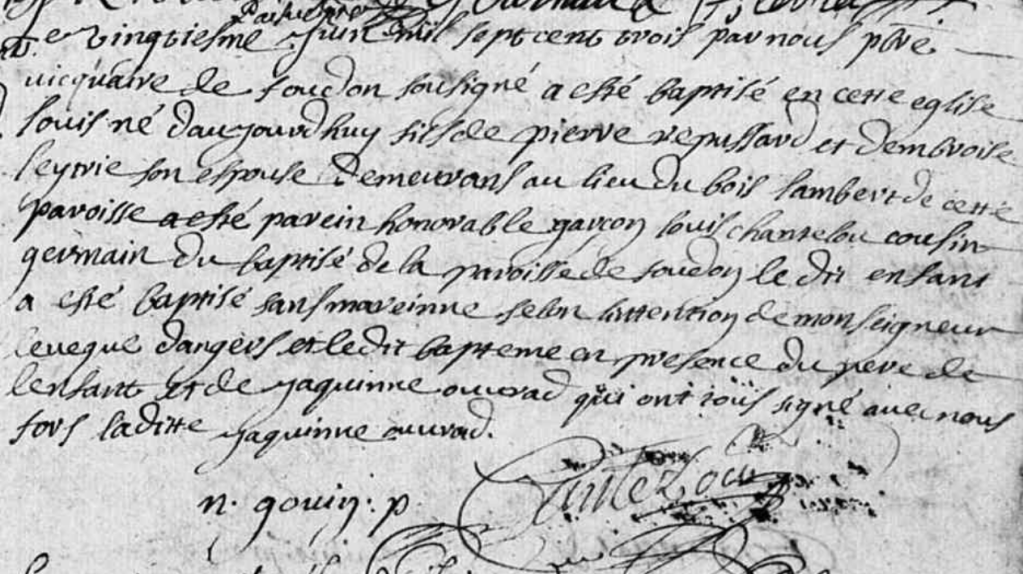 Le vingtiesme juin mil sept cent trois par nous ptre
vicquaire de soudon sousigné a esté baptisé en cette eglise
louis né daujourdhuy fils de pierre repussard et dembroise
leytrie son espouse demeurans au lieu du bois lambert de cette
paroisse a esté parein honorable garçon louis chantelou cousin
germain du baptisé de la paroisse de soudon le dit enfant
a esté baptisé sans mareinne selon lintention de monseigneur
leveque dangers et le dit bapteme en presence du pere de
lenfant et de jaquinne ouvrad qui ont tous signé avec nous
fors laditte jaquinne ouvrad.
n. gouin. p